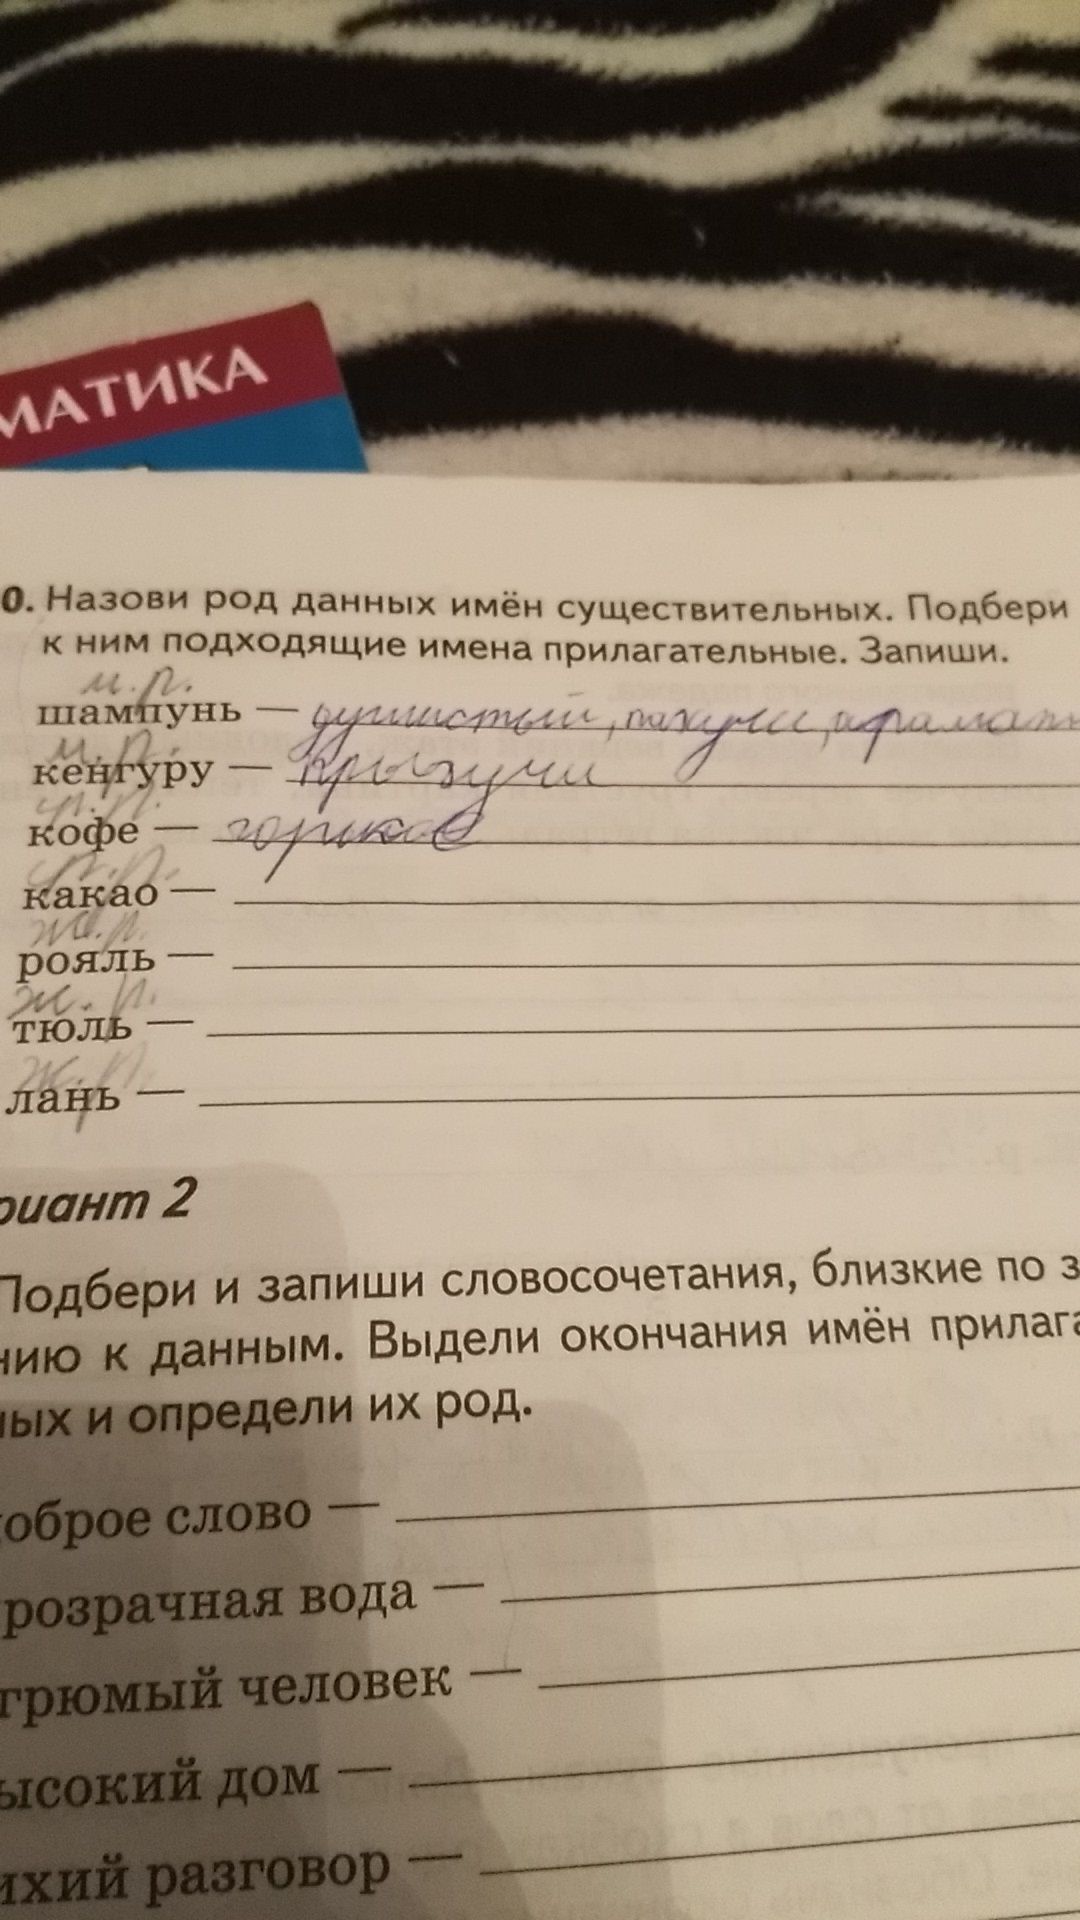 МАТИКА
0. Назови род данных имён существительных. Подбери
к ним подходящие имена прилагательные. Запиши.
м.р.
шампунь — душистый, пахучи,
м.р.
кенгуру — прыгучи
кофе —
какао —
ж.р.
рояль —
ж.р.
тюль —
ж.р.
лань —
риант 2
Подбери и запиши словосочетания, близкие по з
нию к данным. Выдели окончания имён прилага
ных и определи их род.
оброе слово —
розрачная вода —
грюмый человек —
ысокий дом —
ихий разговор —